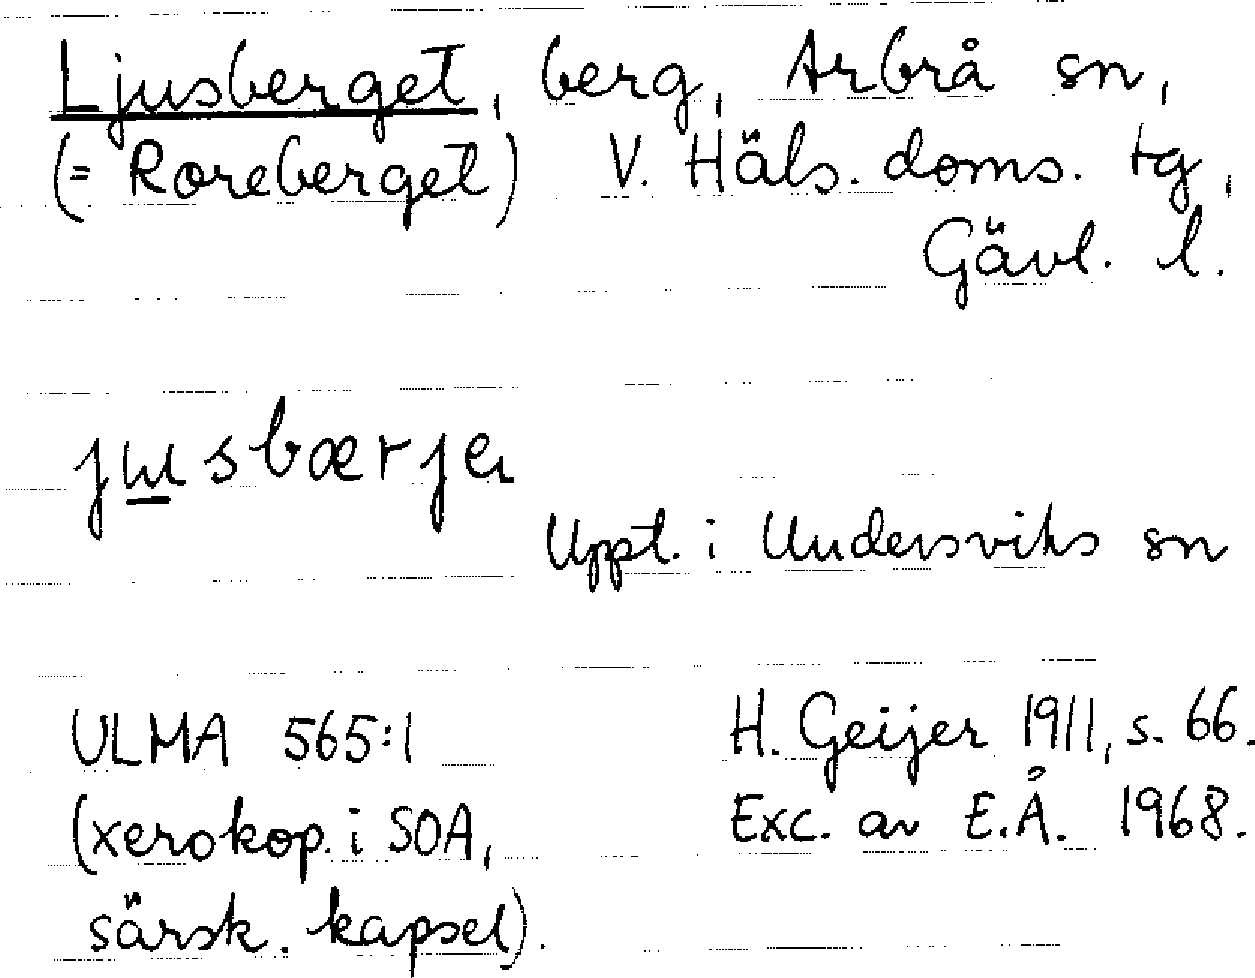 Ljusberget, berg, Arbrå sn,
(= Roreberget) V. Häls. doms. tg,
Gävl. l.
jɯsbærjɐ
Uppt. i Undersviks sn
ULMA 565:1 H. Geijer 1911, s. 66.
(xerokop. i SOA, Exc. av E.Å. 1968.
särsk. kapsel).